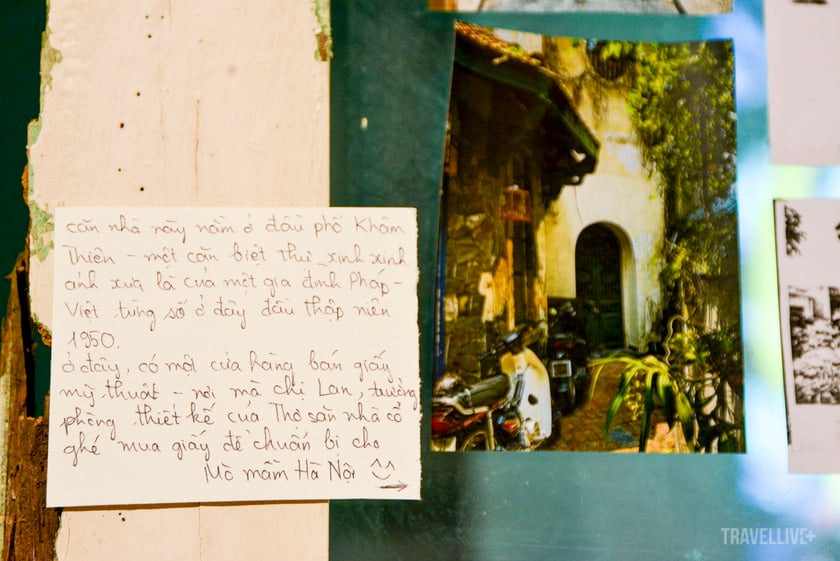 căn nhà này nằm ở đầu phố Khâm
Thiên - một căn biệt thự xinh xinh
ảnh xưa là của một gia đình Pháp -
Việt từng số ở đây đầu thập niên
1950.
ở đây, có một cửa hàng bán giấy
mỹ thuật - nơi mà chị Lan, trưởng
phòng thiết kế của Thợ săn nhà cổ
ghé mua giấy để chuẩn bị cho
Mò mẫm Hà Nội
TRAVELLIVE+